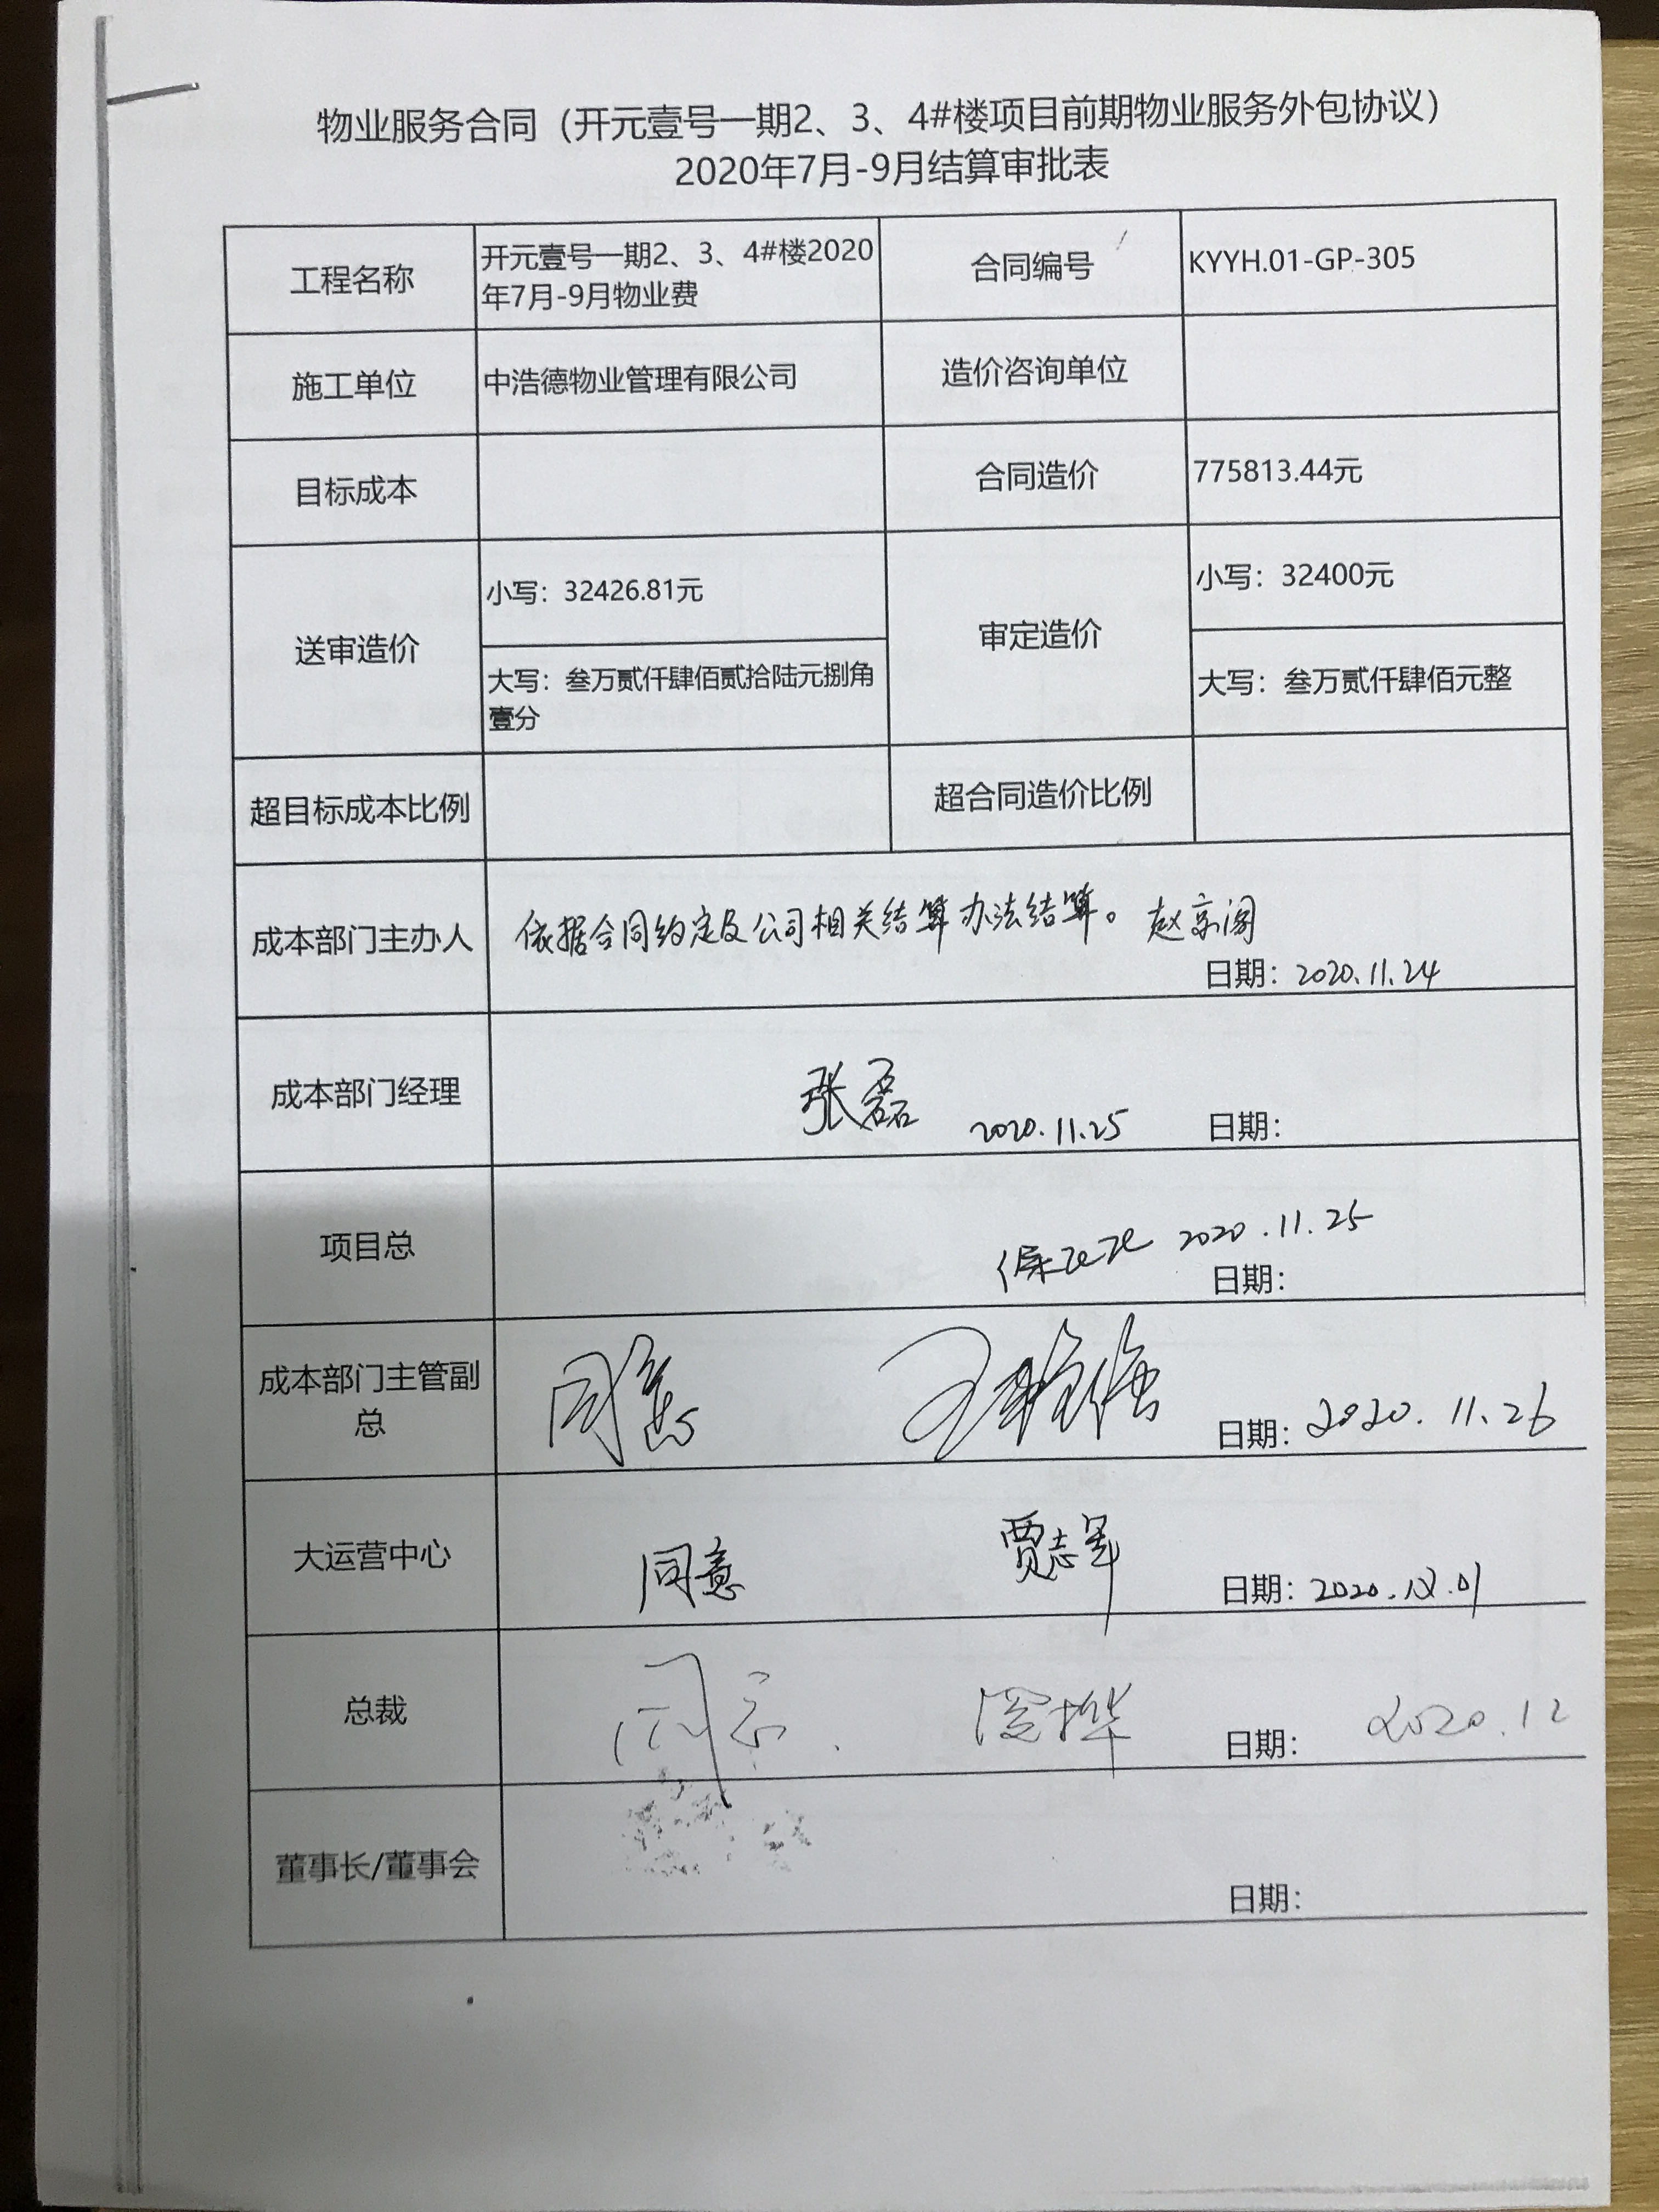 物业服务合同（开元壹号一期2、3、4#楼项目前期物业服务外包协议）
2020年7月-9月结算审批表
工程名称
开元壹号一期2、3、4#楼2020
年7月-9月物业费
合同编号
KYYH.01-GP-305
施工单位
中浩德物业管理有限公司
造价咨询单位
目标成本
合同造价
775813.44元
送审造价
小写：32426.81元
大写：叁万贰仟肆佰贰拾陆元捌角
壹分
审定造价
小写：32400元
大写：叁万贰仟肆佰元整
超目标成本比例
超合同造价比例
成本部门主办人
依据合同约定及公司相关结算办法结算。 赵京阁
日期：2020.11.24
成本部门经理
张磊 2020.11.25 日期：
项目总
2020.11.25
日期：
成本部门主管副
总
同意
日期：2020.11.26
大运营中心
同意 贾志军
日期：2020.12.01
总裁
同意
日期： 2020.12
董事长/董事会
日期：